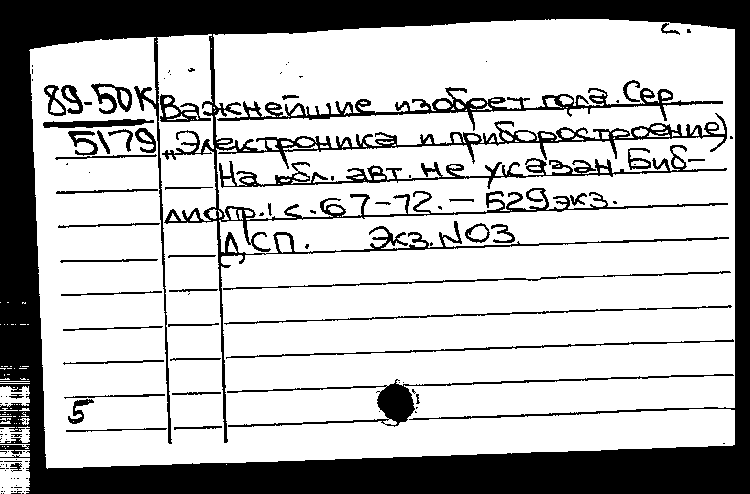 2.
89-50К Важнейшие изобрет года. Сер.
5179 „Электроника и приборостроение).
На обл. авт. не указан. Биб-
лиогр.: с. 67-72. — 529 экз.
ДСП. Экз. №03.
5